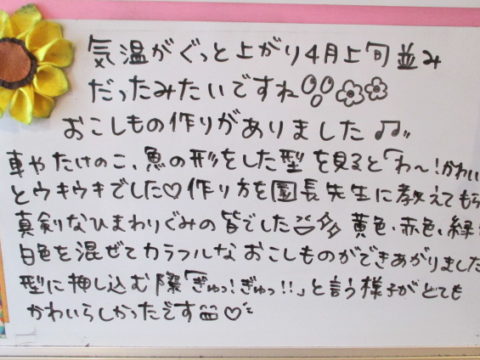 気温がぐっと上がり4月上旬並み
だったみたいですね
おこしもの作りがありました♫
車やたけのこ、魚の形をした型を見ると「わ〜!かわい
とウキウキでした♡作り方を園長先生に教えてもら
真剣なひまわりぐみの皆でした 黄色、赤色、緑
白色を混ぜてカラフルなおこしものができあがりました
型に押し込む際「ぎゅっ!ぎゅっ!!」と言う様子がとても
かわいらしかったです♡